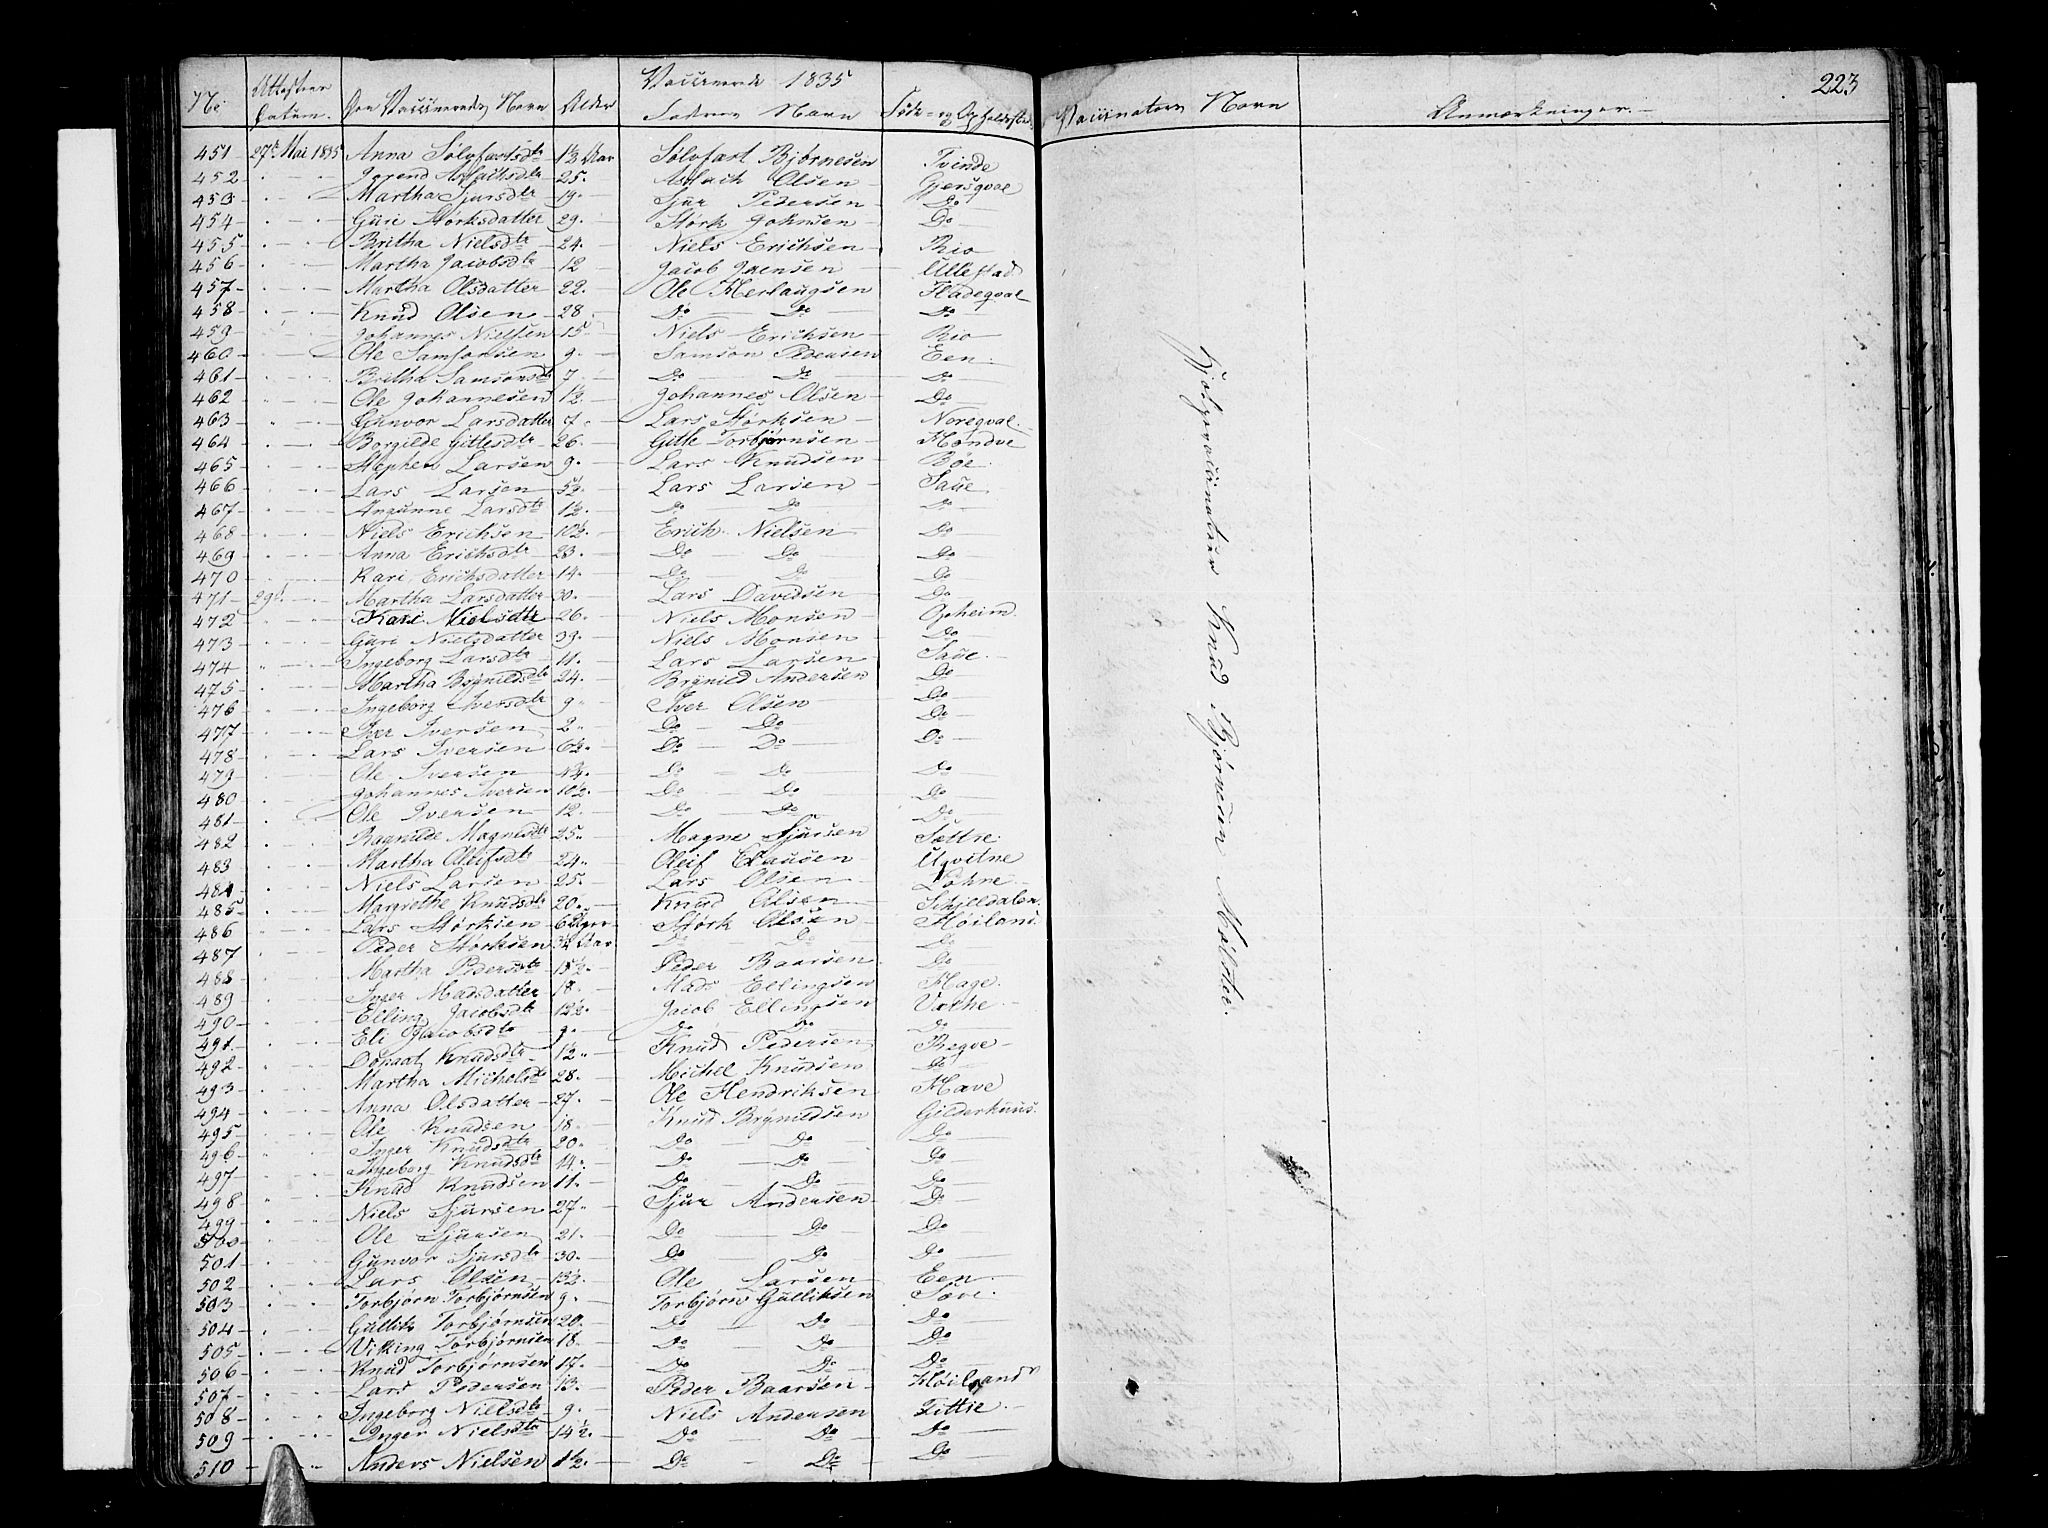 Vaccinerede 1835
223
No Attestens Datum. Den Vaccineredes Navn Alder Faderens Navn Føde- og Opholdssted Vaccinateurs Navn Anmærkninger.
451 27de Mai 1835 Anna Sølvfastsdtr 1½ Aar Sølvfast Bjørnesen Tvinde
452 Aslachsdtr 25. Aslach Olsen Gjersqval
453 Martha Sjursdtr 19. Sjur Pedersen Do
454 Guri Størksdatter 29. Størk Johnsen Do
455 Britha Nielsdtr 24. Niels Erichsen Rio
456 Martha Jacobsdtr 12 Jacob Ullestad
457 Martha Olsdatter 22. Ole Herlaugsen Fladeqval
458 Knud Olsen 28 Do Do Do
459 Johannes Nielsen 15 Niels Erichsen Rio
460 Ole Samsonsen 9. Samson Pedersen Een
461 Britha Samsonsdtr 7 Do Do Do
462 Ole Johannesen 1½. Johannes Olsen Do
463 Gunvor Larsdatter 7. Lars Størksen Noreqval
464 Borgilde Gitlesdtr 26. Gitle Torbjørnsen Møndve
465 Stephen Larsen 9. Lars Knudsen Bøe
466 Lars Larsen 5½. Lars Larsen Saue
467 Angunne Larsdtr 1½. Do Do Do
468 Niels Erichsen 10½. Erich Nielsen Do
469 Anna Erichsdtr 23. Do Do Do
470 Kari Erichsdatter 14. Do Do Do
471 29de Martha Larsdatter 30. Lars Davidsen Do
472 Kari Nielsdtr 26. Niels Monsen Opheim
473 Guri Nielsdatter 39. Niels Monsen Do
474 Ingeborg Larsdtr 11. Lars Larsen Saue
475 Martha Brynildsdtr 24. Brynild Andersen Do
476 Ingeborg Iversdtr 9 Iver Olsen Do
477 Iver Iversen 2 Do Do Do
478 Lars Iversen 6½. Do Do Do
479 Ole Iversen Do Do Do
480 Johannes Iversen 10½. Do Do Do
481 Ole Iversen 12. Do Do Do
482 Ragnilde Magnesdtr 25. Magne Sjursen Sættre
483 Martha Oleifsdtr 24. Oleif Clausen Ugvitne
484 Niels Larsen 25. Lars Olsen Løhne
485 Margrethe Knudsdtr 20. Knud Olsen Schjelldalen
486 Lars Størksen 6 Uger Størk Olsen Høiland
487 Peder Størksen Aar Do Do Do
488 Martha Pedersdtr 15½. Peder Baarsen Do
489 Inger Madsdatter 18. Mads Ellingsen Hage
490 Elling Jacobsdtr 12½. Jacob Ellingsen Væthe
491 Eli Jacobsdtr 9. Do Do Do
492 Knudsdtr 1½. Knud Pedersen Regve
493 Martha Michelsdtr 28. Michel Knudsen Do
494 Anna Olsdatter 27. Ole Hendriksen Hæve
495 Ole Knudsen 18. Knud Brynildsen Gilderhuus
496 Inger Knudsdtr 20. Do Do Do
497 Ingeborg Knudsdtr 14. Do Do Do
498 Knud Knudsen 11. Do Do Do
499 Niels Sjursen 27. Sjur Andersen Do
500 Ole Sjursen 21. Do Do Do
501 Gunvor Sjursdtr 30. Do Do Do
502 Lars Olsen 13½. Ole Larsen Een
503 Torbjørn Torbjørnsen 9. Torbjørn Gulliksen Sæve
504 Gullik Torbjørnsen 20. Do Do Do
505 Viking Torbjørnsen 18. Do Do Do
506 Knud Torbjørnsen 17. Do Do Do
507 Lars Pedersen 13. Peder Baarsen Høiland
508 Ingeborg Nielsdtr 9. Niels Andersen Tittie
509 Inger Nielsdtr 14½. Do Do Do
510 Anders Nielsen 1½. Do Do Do
Hjelpevaccinateur Knud Bjørnesen Mølster